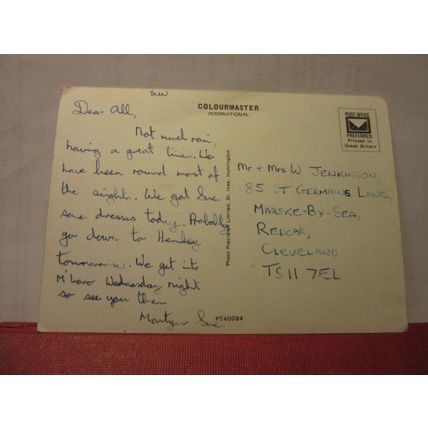 SUN
Dear All,
Not much rain,
having a great time. We
have been round most of
the sights. We got Sue
some dresses today. Probably
go down to Henley
tomorrow. We get into
M'boro Wednesday night
so see you then
Martyn Sue
COLOURMASTER
INTERNATIONAL
Photo Precision Limited, St. Ives, Huntingdon
PT40094
POST OFFICE
PREFERRED
Printed in
Great Britain
Mr + Mrs W JENKINSON
85 ST GERMAINS LANE,
MARSKE-BY-SEA,
REDCAR,
CLEVELAND
TS11 7EL